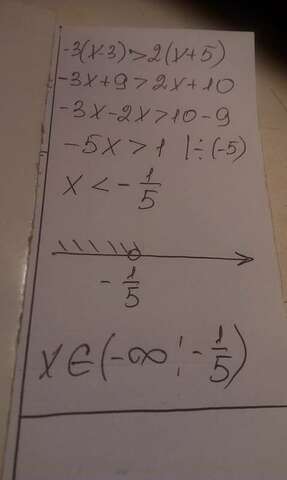 -3(x-3)>2(x+5)
-3x+9>2x+10
-3x-2x>10-9
-5x>1 |÷(-5)
x<-1/5
-1/5
x∈(-∞;-1/5)